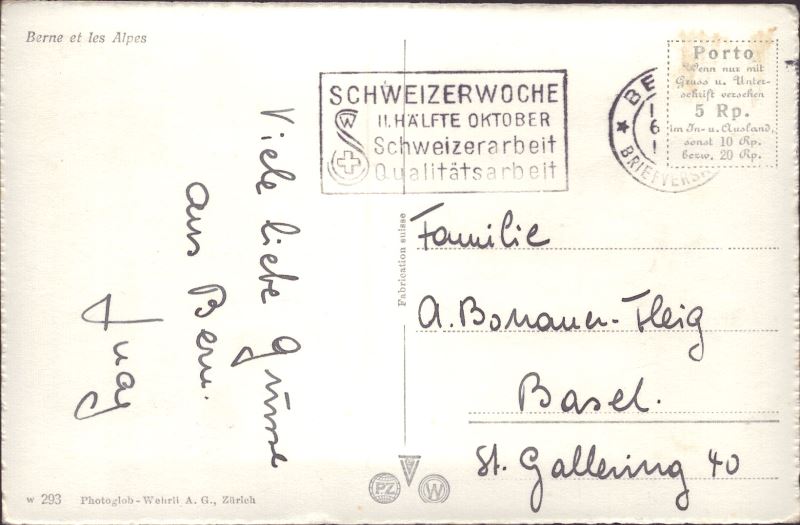 Berne et les Alpes
Viele liebe Grüsse
aus Bern.
SCHWEIZERWOCHE
II. HÄLFTE OKTOBER
Schweizerarbeit
Qualitätsarbeit
W
BE
1
6
1
BRIEFVERS
Porto
Wenn nur mit
Gruss u. Unter-
schrift versehen
5 Rp.
im In- u. Ausland,
sonst 10 Rp.
bezw. 20 Rp.
Fabrication suisse
Familie
A. Bonauer-Fleig
Basel.
St. Gallerring 40
PZ
W
W 293 Photoglob-Wehrli A. G., Zürich